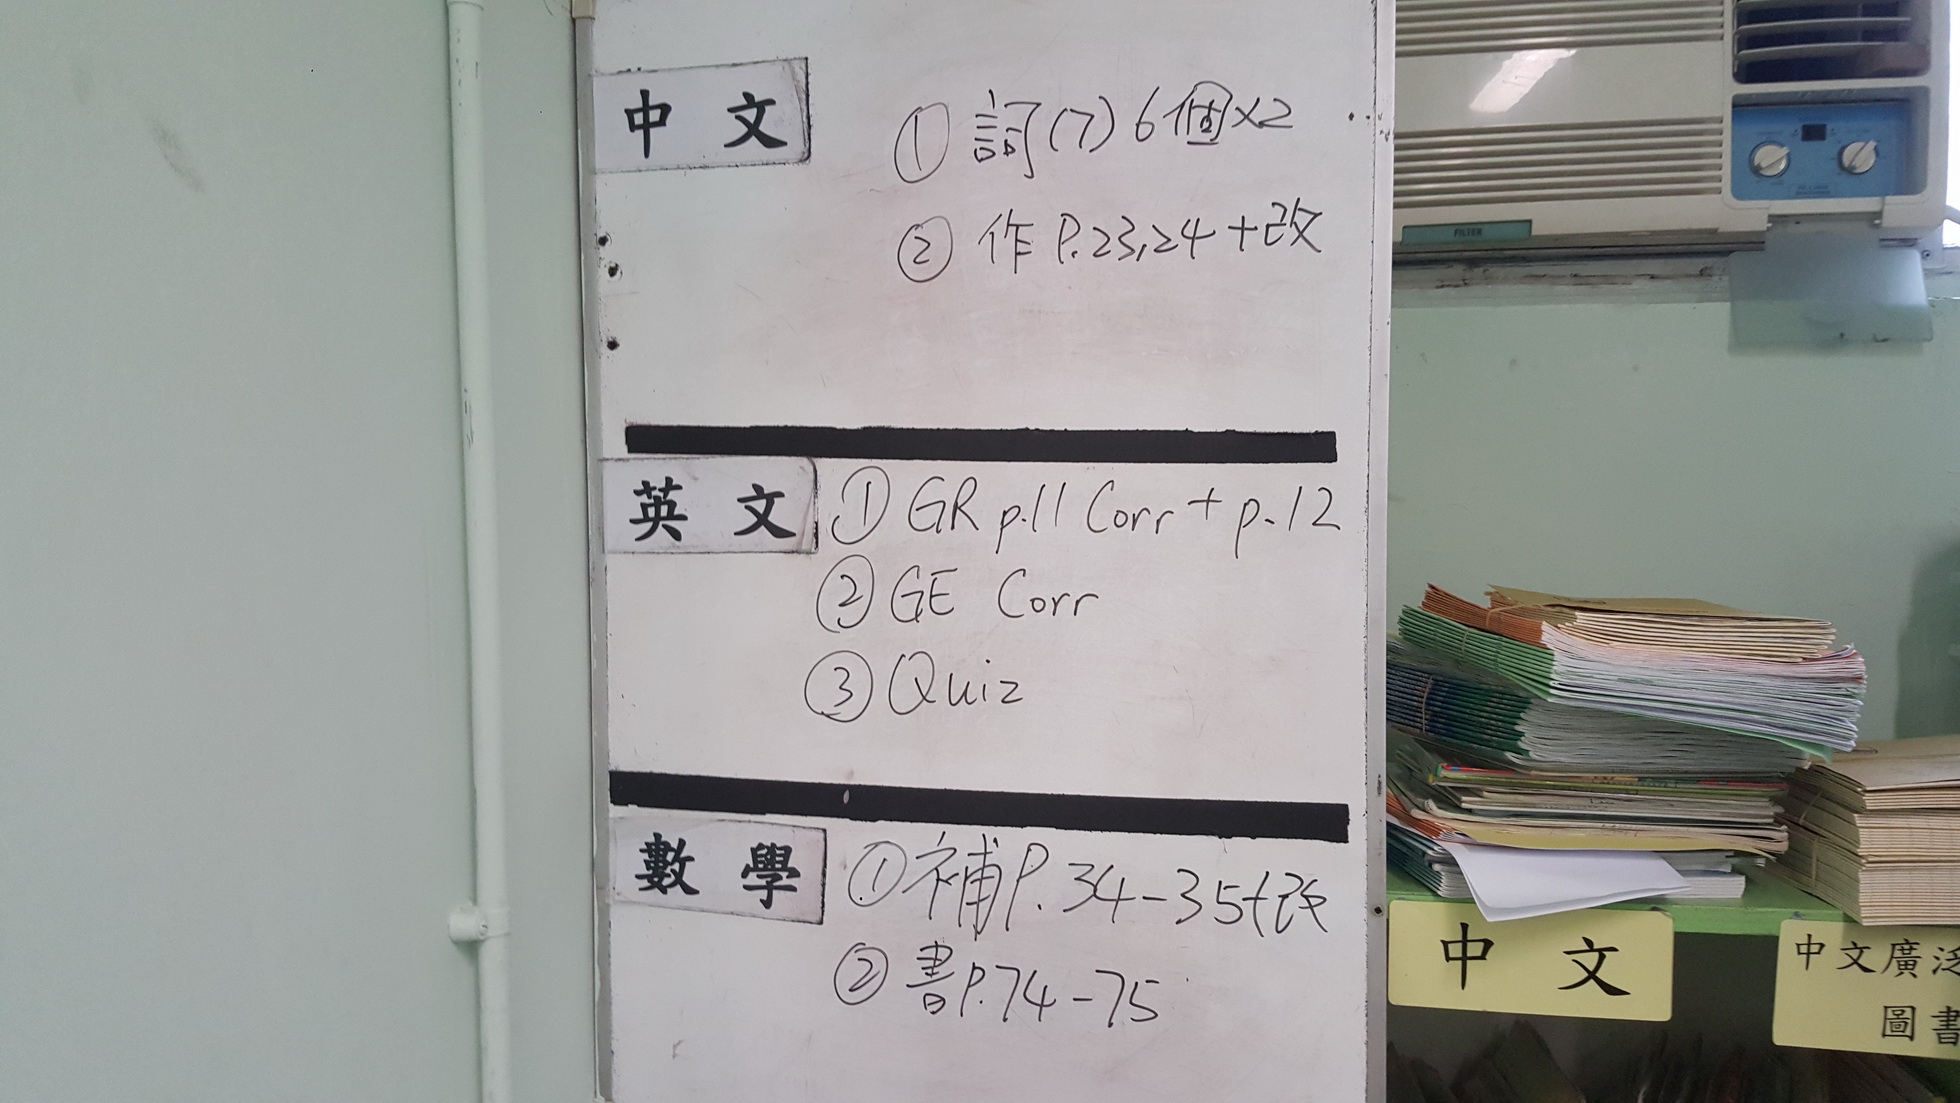 中文
① 詞(7) 6個x2
② 作 P.23,24 +改
英文
① GR p.11 Corr + p.12
② GE Corr
③ Quiz
數學
① 補P.34-35+改
② 書P.74-75
FILTER
中文
中文廣泛
圖書